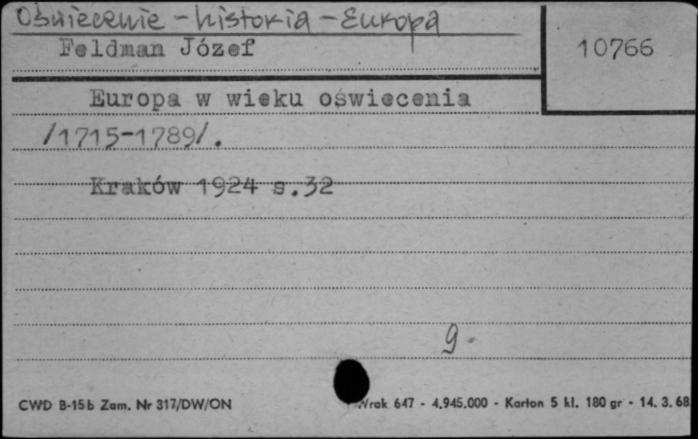 Oświecenie - historia - Europa
Feldman Józef
10766
Europa w wieku oświecenia
/1715-1789/.
Kraków 1924 s.32
9.
CWD B-15b Zam. Nr 317/DW/ON
rak 647 - 4.945.000 - Karton 5 kl. 180 gr - 14. 3. 68